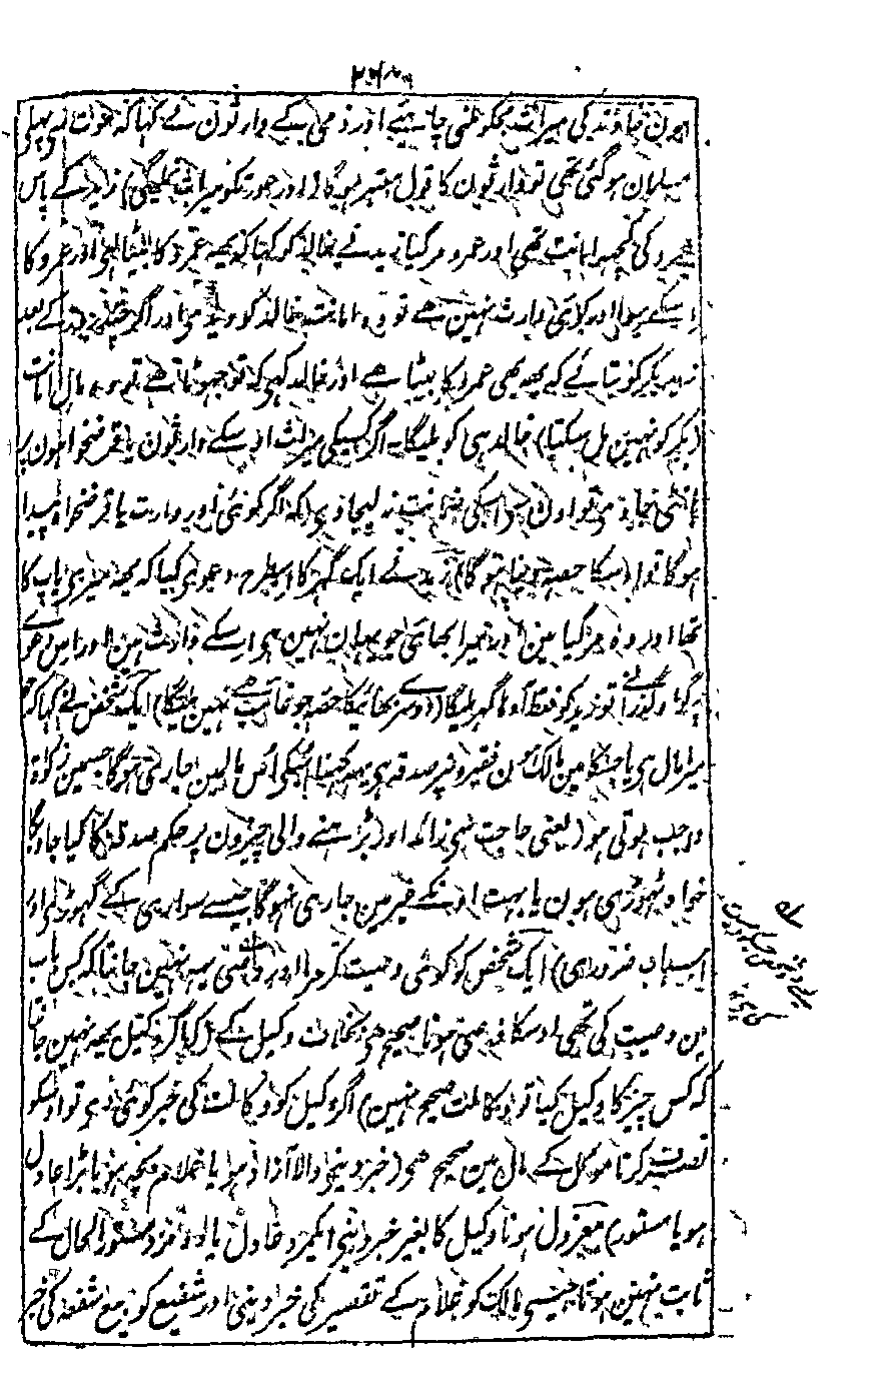 ہون خاوند کی میراث مجکو ملنی چاہیے اور ذمی کے وارثون نے کہا کہ موت سے پہلی
مسلمان ہو گئی تھی تو وارثون کا قول معتبر ہوگا اور عورتکو میراث نملیگی) زید کے پاس
عمرو کی کچھ امانت تھی اور عمرو مر گیا زید نے خالد کو کہا کہ یہہ عمرو کا بیٹا ہے اور عمرو کا
اسکے سوا اور کوئی وارث نہین ہے تو وہ امانت خالد کو دیدی اور اگر زید کے بعد
زید بکر کو بتائے کہ یہہ بھی عمرو کا بیٹا ہے اور خالد کہی کہ تو جھوٹا ہے تو وہ مال امانت
(بکر کو نہین مل سکتا) خالد ہی کو ملیگا۔ اگر کسیکی میراث اوسکے وارثون یا قرضخواہون پر
بانٹی جاوی تو اون سے اسکی ضمانت نہ لیجاوی (کہ اگر کوئی اور وارث یا قرضخواہ پیدا
ہوگا تو اوسکا حصہ دینا ہوگا) زید نے ایک گھر کا اسطرح دعوی کیا کہ یہہ میری باپ کا
تھا اور وہ مر گیا مین اور میرا بھائی جو یہان نہین ہی اوسکے وارث ہین اور اس دعوے
پر گواہ گذرانے تو زید کو فقط آدھا گھر ملیگا (دوسرے بھائیکا حصہ جو غائب ہے نہین ملیگا) ایک شخص نے کہا کہ جو
میرا مال ہی یا جسکا مین مالک ہون فقیرونپر صدقہ ہی یہہ کہنا اسکی اُس مالمین جاری ہوگا جسمین زکوٰۃ
واجب ہوتی ہو (یعنی حاجت سی زائد اور بڑہنے والی چیزون پر حکم صدقہ کا کیا جاویگا
خواہ تھوڑی ہون یا بہت اونکے غیر مین جاری نہوگا جیسے سواری کے گھوڑی اور
اسباب ضروری) ایک شخص کو کوئی وصیت کر مرا اور وصی یہہ نہین جانتا کہ کس باب
مین وصیت کی تھی اوسکا وصی ہونا صحیح ہی بخلاف وکیل کے (کہ اگر وکیل یہہ نہین جانتا
کہ کس چیز کا وکیل کیا تو وکالت صحیح نہین) اگر وکیل کو وکالت کی خبر کوئی دی تو اوسکو
تصرف کرنا موکل کے مال مین صحیح ہی (خبر دینے والا آزاد ہو یا غلام بچہ ہو یا بڑا عادل
ہو یا مستور) معزول ہونا وکیل کا بغیر خبر دینے ایک مرد عادل یا دو مرد مستور الحال کے
ثابت نہین ہوتا جیسی مالک کو غلام کے تقصیر کی خبر دینی اور شفیع کو بیع شفعہ کی خبر